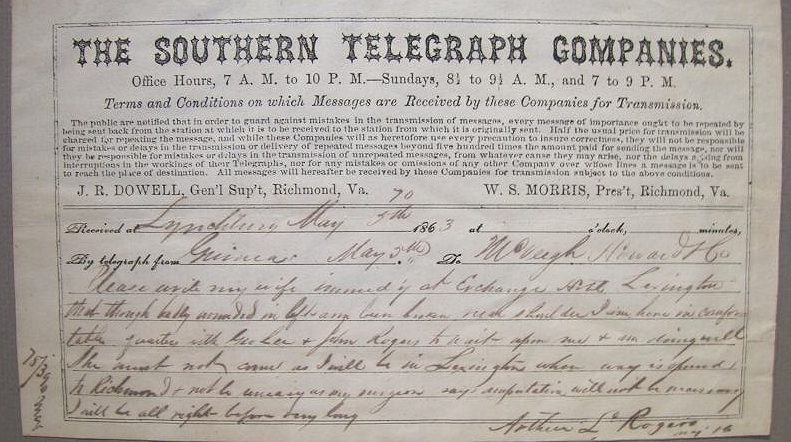 THE SOUTHERN TELEGRAPH COMPANIES.
Office Hours, 7 A. M. to 10 P. M.—Sundays, 8½ to 9½ A. M., and 7 to 9 P. M.
Terms and Conditions on which Messages are Received by these Companies for Transmission.
The public are notified that in order to guard against mistakes in the transmission of messages, every message of importance ought to be repeated by
being sent back from the station at which it is to be received to the station from which it is originally sent. Half the usual price for transmission will be
charged for repeating the message, and while these Companies will as heretofore use every precaution to insure correctness, they will not be responsible
for mistakes or delays in the transmission or delivery of repeated messages beyond five hundred times the amount paid for sending the message, nor will
they be responsible for mistakes or delays in the transmission of unrepeated messages, from whatever cause they may arise, nor for delays arising from
interruptions in the workings of their Telegraphs, nor for any mistakes or omissions of any other Company over whose lines a message is to be sent
to reach the place of destination. All messages will hereafter be received by these Companies for transmission subject to the above conditions.
J. R. DOWELL, Gen'l Sup't, Richmond, Va. W. S. MORRIS, Pres't, Richmond, Va.
70
Received at Lynchburg May 5th 1863 at o'clock, minutes,
By telegraph from Guineas May 5th To McVeigh Howard & Co
Please write my wife immedy at Exchange Hotel Lexington
that though badly wounded in left arm bone broken near shoulder I am here in comfor
table quarter with Geo Lee & John Rogers to wait upon me & am doing well
She must not come as I will be in Lexington when way is opened
to Richmond & not be uneasy as my surgeon says amputation will not be necessary
I will be all right before very long
Arthur L Rogers